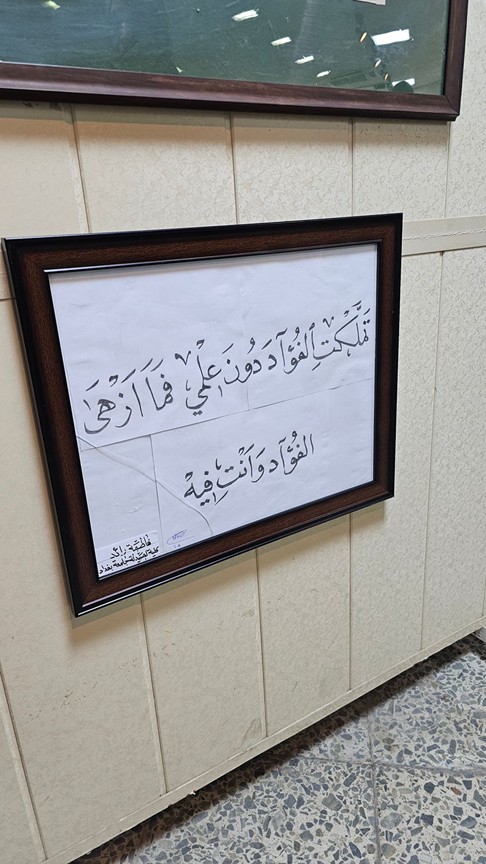 تَمَلَّكتِ الفُؤآدَ دُونَ عِلْمِي فَمَا اَزْهَىَ
الفُؤآد وَاَنْتِ فِيهْ
فاطمة رائد
كلية الصيدلة جامعة بغداد